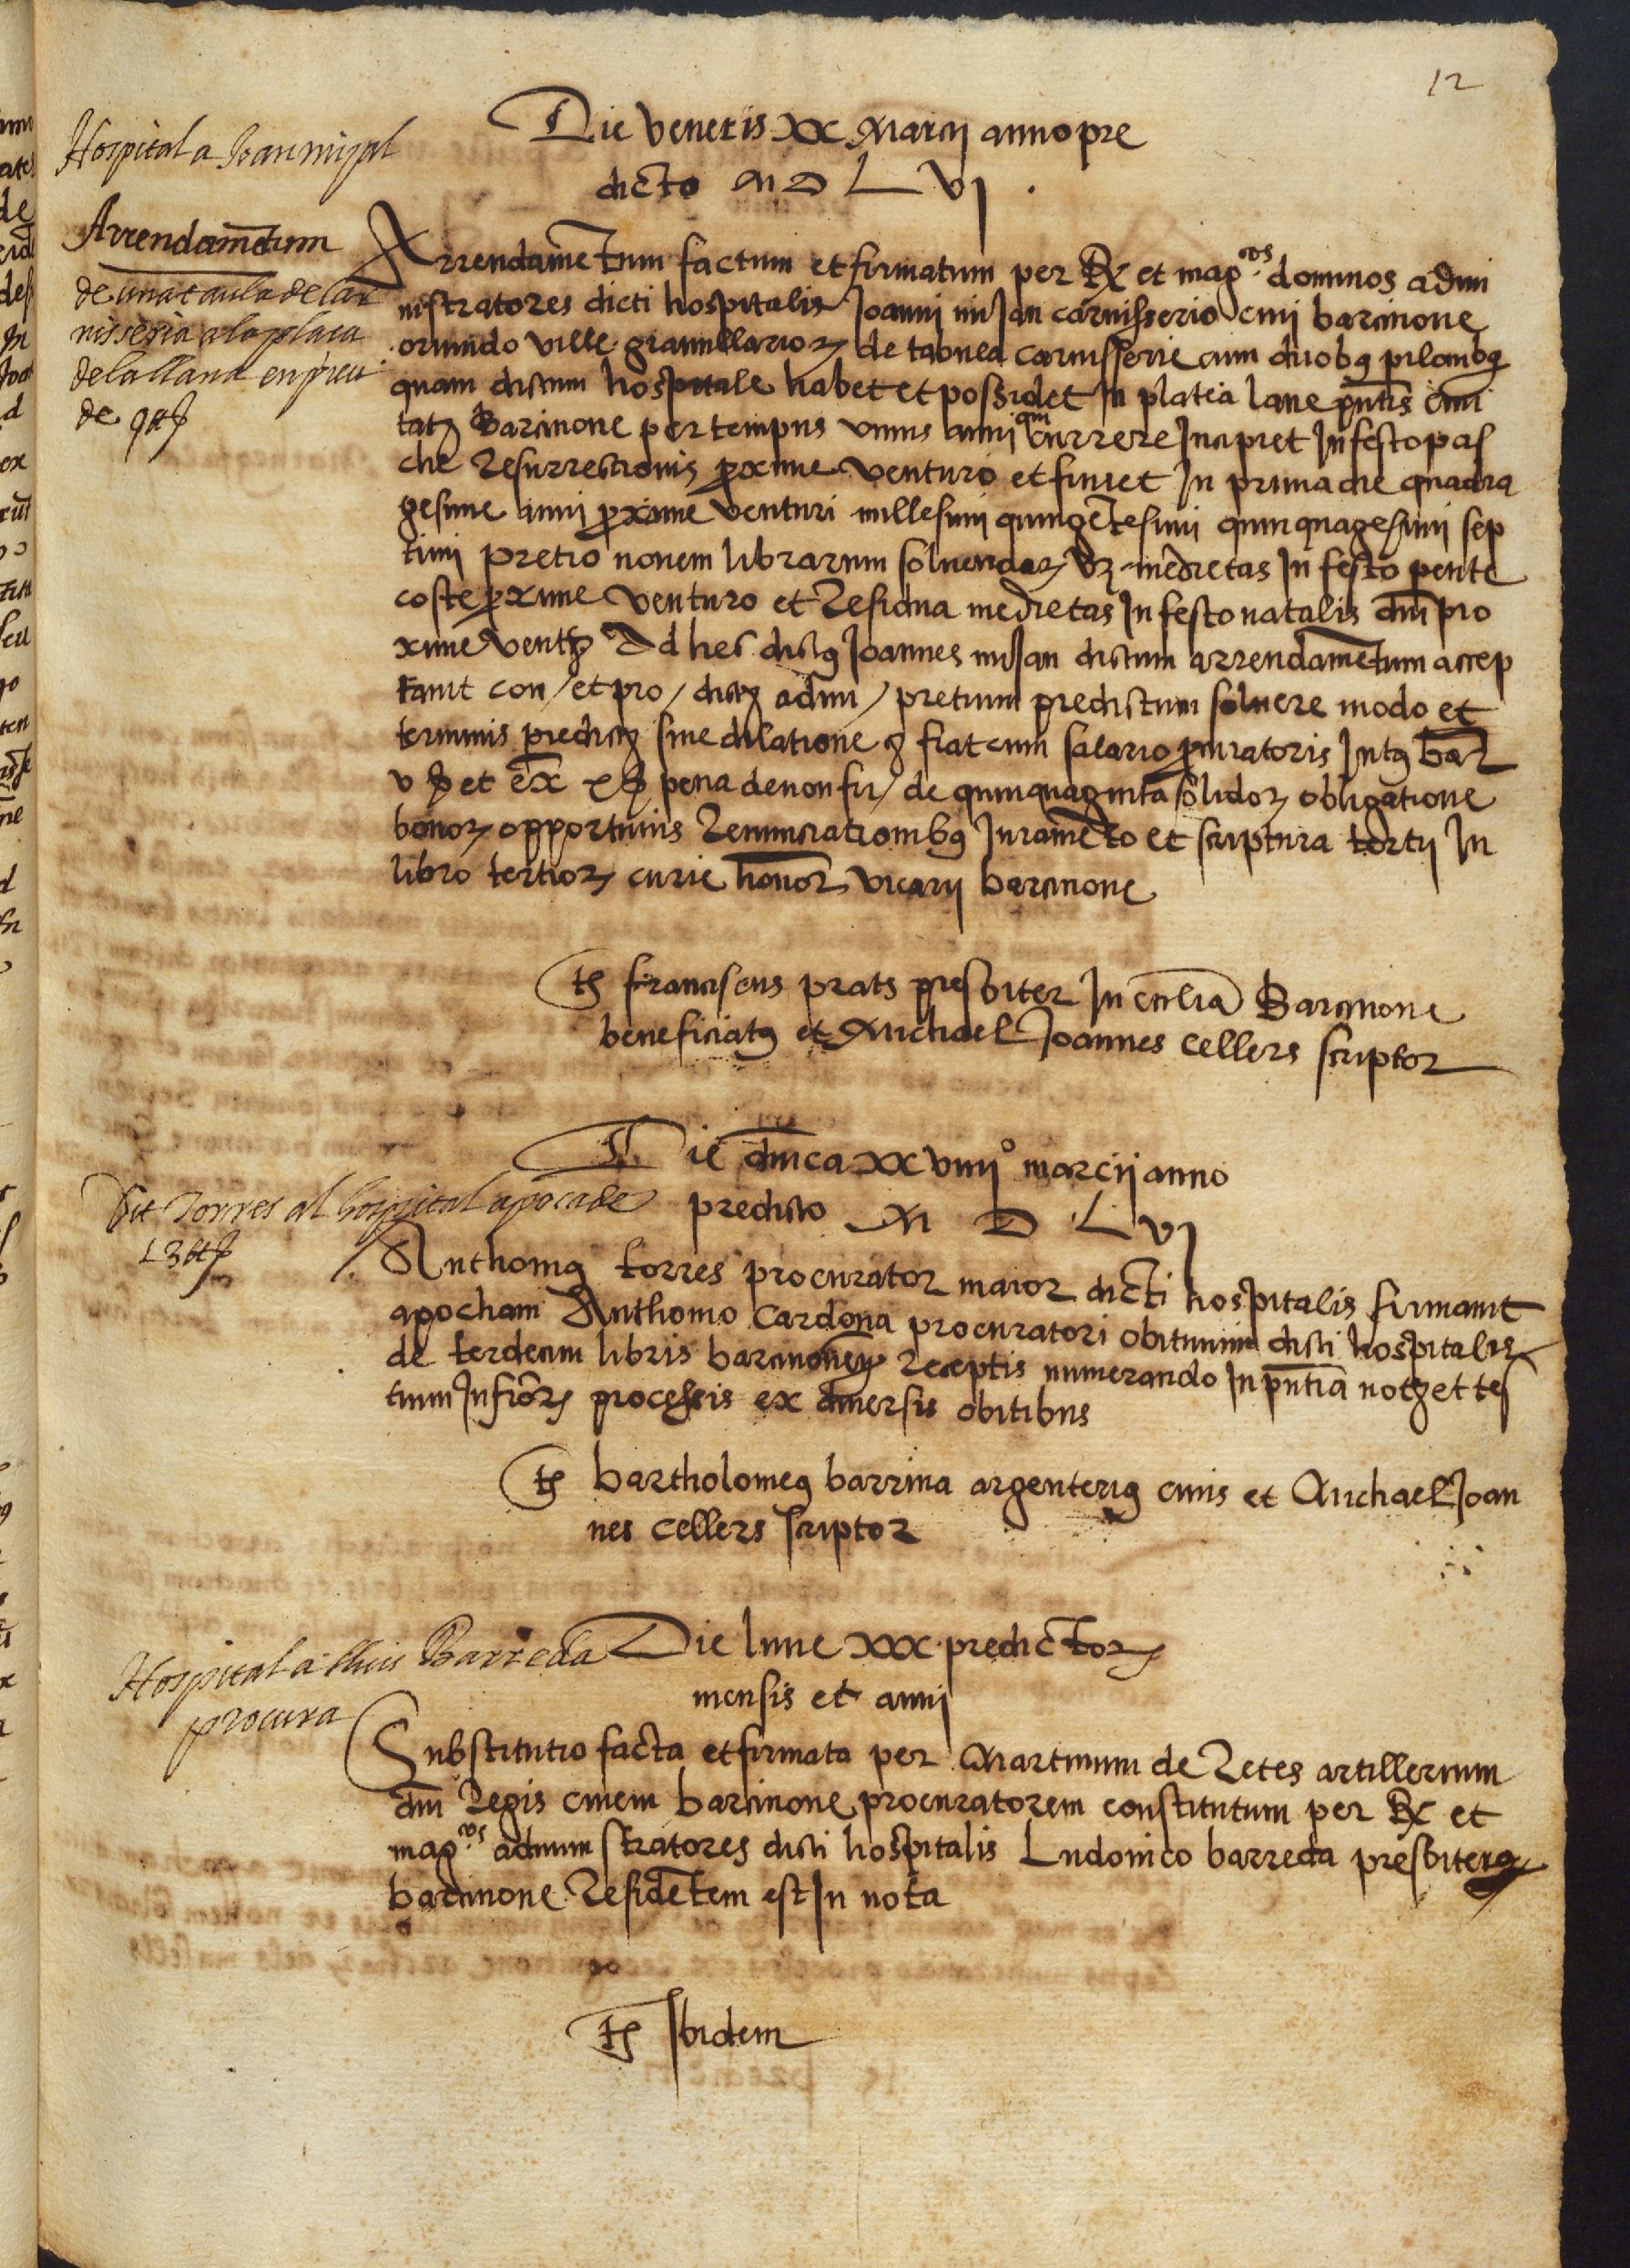 12
Die veneris xx Marcij anno pre
dicto M D L Vj .
Hospital a Joan mijal
Arrendametum
de una taula de car
nisseria a la plaça
de la llana en preu
de 9 ll
Arrendametum factum et firmatum per Rx et magcos dominos admi
nistratores dicti hospitalis Joanni miJan carnisserio civi barcinone
oriundo ville granullarior de tabula carnisserie cum duobq pilonibq
quam dictum hospitale habet et possidet In platea lane pntis civi
tatz Barcinone per tempus unius anni qui currere Incipiet In festo pas
che Resurrectionis proxime venturo et finiet In prima die quadra
gesime anni proxime venturi millesimi quingetesimi quinquagesimi sep
timi pretio novem librarum solvendar vz medietas In festo pente
coste proxime venturo et Residua medietas In festo natalis dni pro
xime vent Ad hec dictq Joannes miJan dictum arrendametum accep
tavit con / et pro / dictz admi / pretium predictum solvere modo et
terminis predictz sine dilatione q fiat cum salario procuratoris Intq bar
v ß et ex x ß pena de non fir / de quinquaginta solidor obligatione
bonor opportunis Renunciationibq Jurameto et scriptura tertij In
libro tertior curie honor vicarij barcinone
ts franciscus prats presbiter In ecclia Barcinone
beneficiatq et Michael Joannes cellers scriptor
Die dnica xxviiijº marcij anno
predicto M D L Vj
Dit Torres al hospital apoca de
13 ll
Anthoniq torres procurator maior dicti hospitalis firmavit
apocham Anthonio Cardona procuratori obituum dicti hospitalis
de terdecim libris barcinonen Receptis numerando In pntia not et tes
tium Infror processis ex diversis obitibus
ts bartholomeq barrina argenteriq civis et Michael Joan
nes cellers scriptor
Die lune xxx predictor
mensis et anni
Hospital a lluis Barreda
procura
Substitutio facta et firmata per Martinum de Retes artillerium
dni Regis civem barcinone procuratorem constitutum per Rx et
magcos administratores dicti hospitalis Ludovico barreda presbitero
barcinone Residetem est In nota
ts Ibidem